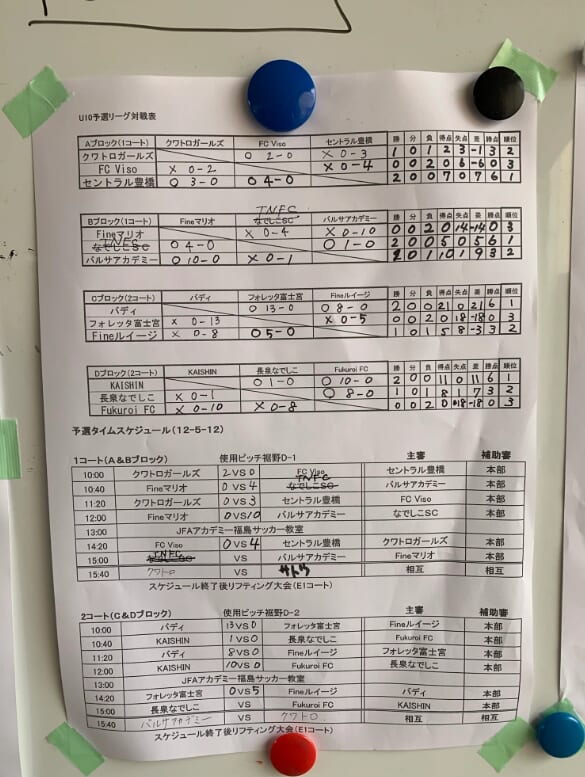 U10予選リーグ対戦表
Aブロック(1コート) クワトロガールズ FC Viso セントラル豊橋 勝 分 負 得点 失点 差 勝点 順位
クワトロガールズ O 2-0 X 0-3 1 0 1 2 3 -1 3 2
FC Viso X 0-2 X 0-4 0 0 2 0 6 -6 0 3
セントラル豊橋 O 3-0 O 4-0 2 0 0 7 0 7 6 1
TNFC
Bブロック(1コート) Fineマリオ なでしこSC バルサアカデミー 勝 分 負 得点 失点 差 勝点 順位
Fineマリオ X 0-4 X 0-10 0 0 2 0 14 -14 0 3
TNFC
なでしこSC O 4-0 O 1-0 2 0 0 5 0 5 6 1
バルサアカデミー O 10-0 X 0-1 1 0 1 10 1 9 3 2
Cブロック(2コート) バディ フォレッタ富士宮 Fineルイージ 勝 分 負 得点 失点 差 勝点 順位
バディ O 13-0 O 8-0 2 0 0 21 0 21 6 1
フォレッタ富士宮 X 0-13 X 0-5 0 0 2 0 18 -18 0 3
Fineルイージ X 0-8 O 5-0 1 0 1 5 8 -3 3 2
Dブロック(2コート) KAISHIN 長泉なでしこ Fukuroi FC 勝 分 負 得点 失点 差 勝点 順位
KAISHIN O 1-0 O 10-0 2 0 0 11 0 11 6 1
長泉なでしこ X 0-1 O 8-0 1 0 1 8 1 7 3 2
Fukuroi FC X 0-10 X 0-8 0 0 2 0 18 -18 0 3
予選タイムスケジュール(12-5-12)
1コート(A&Bブロック) 使用ピッチ裾野D-1 主審 補助審
10:00 クワトロガールズ 2 VS 0 FC Viso セントラル豊橋 本部
TNFC
10:40 Fineマリオ 0 VS 4 なでしこSC バルサアカデミー 本部
11:20 クワトロガールズ 0 VS 3 セントラル豊橋 FC Viso 本部
12:00 Fineマリオ 0 VS 10 バルサアカデミー なでしこSC 本部
13:00 JFAアカデミー福島サッカー教室
14:20 FC Viso 0 VS 4 セントラル豊橋 クワトロガールズ 本部
TNFC
15:00 なでしこSC VS バルサアカデミー Fineマリオ 本部
15:40 クワトロ VS サトウ 相互 相互
スケジュール終了後リフティング大会(E1コート)
2コート(C&Dブロック) 使用ピッチ裾野D-2 主審 補助審
10:00 バディ 13 VS 0 フォレッタ富士宮 Fineルイージ 本部
10:40 KAISHIN 1 VS 0 長泉なでしこ Fukuroi FC 本部
11:20 バディ 8 VS 0 Fineルイージ フォレッタ富士宮 本部
12:00 KAISHIN 10 VS 0 Fukuroi FC 長泉なでしこ 本部
13:00 JFAアカデミー福島サッカー教室
14:20 フォレッタ富士宮 0 VS 5 Fineルイージ バディ 本部
15:00 長泉なでしこ VS Fukuroi FC KAISHIN 本部
15:40 バルサアカデミー VS クワトロ 相互 相互
スケジュール終了後リフティング大会(E1コート)